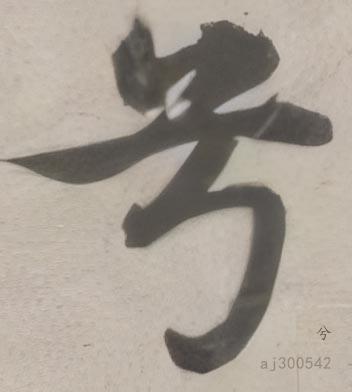 兮
兮
aj300542